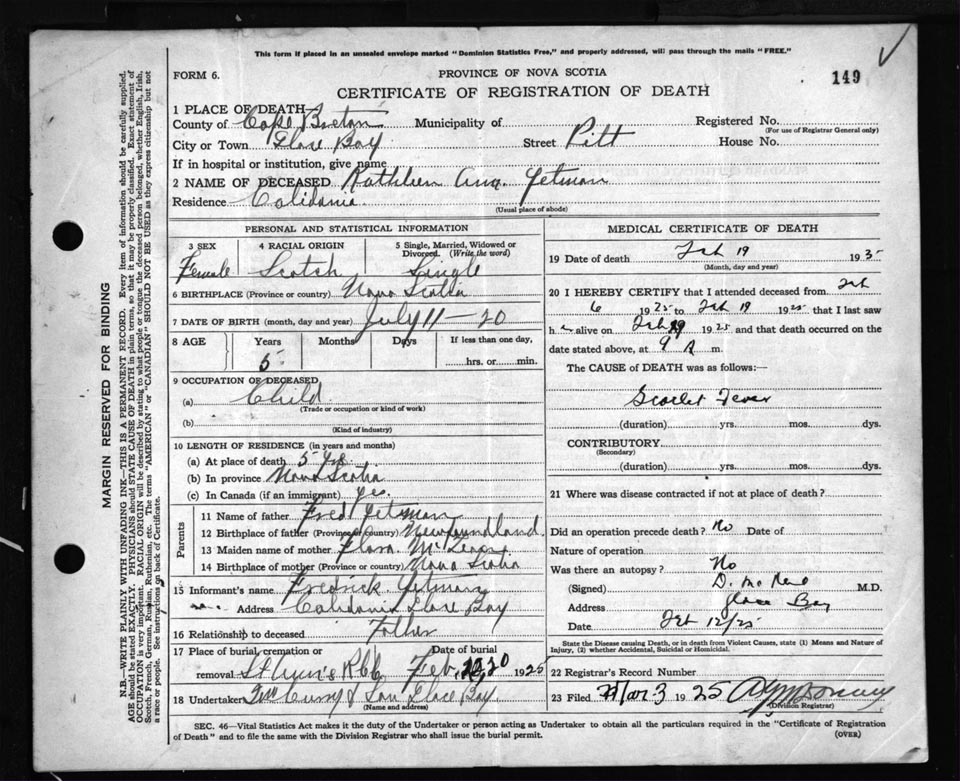 This form if placed in an unsealed envelope marked "Dominion Statistics Free," and properly addressed, will pass through the mails "FREE."
FORM 6.
PROVINCE OF NOVA SCOTIA
149
CERTIFICATE OF REGISTRATION OF DEATH
1 PLACE OF DEATH
County of Cape Breton Municipality of Registered No.
(For use of Registrar General only)
City or Town Glace Bay Street Pitt House No.
If in hospital or institution, give name
2 NAME OF DECEASED Kathleen Ann Yetman
Residence Calidonia
(Usual place of abode)
PERSONAL AND STATISTICAL INFORMATION
3 SEX 4 RACIAL ORIGIN 5 Single, Married, Widowed or Divorced. (Write the word)
Female Scotch Single
6 BIRTHPLACE (Province or country) Nova Scotia
7 DATE OF BIRTH (month, day and year) July 11-20
8 AGE Years Months Days If less than one day,
5 hrs. or min.
9 OCCUPATION OF DECEASED
(a) Child
(Trade or occupation or kind of work)
(b)
(Kind of industry)
10 LENGTH OF RESIDENCE (in years and months)
(a) At place of death 5 yrs.
(b) In province Nova Scotia
(c) In Canada (if an immigrant) yes.
Parents
11 Name of father Fred Yetman
12 Birthplace of father (Province or country) Newfoundland
13 Maiden name of mother Flora
14 Birthplace of mother (Province or country) Nova Scotia
15 Informant's name Fredrick Yetman
Address Calidonia Glace Bay
16 Relationship to deceased Father
17 Place of burial, cremation or removal Date of burial
St Ann's Feb. 20 1925
18 Undertaker Curry & Son Glace Bay
(Name and address)
MEDICAL CERTIFICATE OF DEATH
19 Date of death Feb 19 1935
(Month, day and year)
20 I HEREBY CERTIFY that I attended deceased from Feb
6 1925 to Feb 19 1925 that I last saw
h alive on Feb 19 1925 and that death occurred on
date stated above, at 9 A m.
The CAUSE of DEATH was as follows:—
Scarlet Fever
(duration) yrs. mos. dys.
CONTRIBUTORY
(Secondary)
(duration) yrs. mos. dys.
21 Where was disease contracted if not at place of death?
Did an operation precede death? No Date of
Nature of operation
Was there an autopsy? No
(Signed) D. M.D.
Address Glace Bay
Date Feb 12/25
State the Disease causing Death, or in death from Violent Causes, state (1) Means and Nature of
Injury, (2) whether Accidental, Suicidal or Homicidal.
22 Registrar's Record Number
23 Filed Mar 3 1925
(Division Registrar)
SEC. 46—Vital Statistics Act makes it the duty of the Undertaker or person acting as Undertaker to obtain all the particulars required in the "Certificate of Registration
of Death" and to file the same with the Division Registrar who shall issue the burial permit.
(OVER)
MARGIN RESERVED FOR BINDING
N.B.—WRITE PLAINLY WITH UNFADING INK—THIS IS A PERMANENT RECORD. Every item of information should be carefully supplied.
AGE should be stated EXACTLY. PHYSICIANS should STATE CAUSE OF DEATH in plain terms, so that it may be properly classified. Exact statement of
OCCUPATION is very important. RACIAL ORIGIN will be described by stating to what people or tongue the deceased person belonged, whether English, Irish,
Scotch, French, German, Russian, Ruthenian, etc. The terms "AMERICAN" or "CANADIAN" SHOULD NOT BE USED as they express citizenship but not
a race or people. See instructions on back of Certificate.